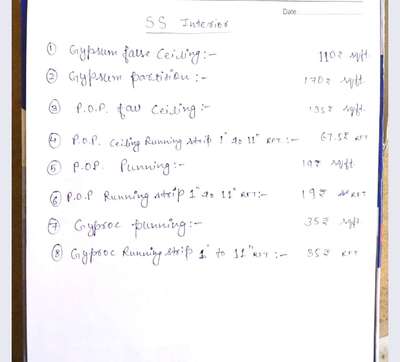 Date
SS Interior
① Gypsum false Ceiling:- 110₹ sqft.
② Gypsum partision:- 170₹ sqft.
③ P.O.P. Ceiling:- 135₹ sqft.
④ P.O.P. Ceiling Running strip 1" to 11" RFT:- 67.5₹ RFT
⑤ P.O.P. Punning:- 19₹ sqft.
⑥ P.O.P Running strip 1" to 11" RFT:- 19₹ RFT
⑦ Gyproc punning:- 35₹ sqft
⑧ Gyproc Running strip 1" to 11" RFT:- 35₹ RFT